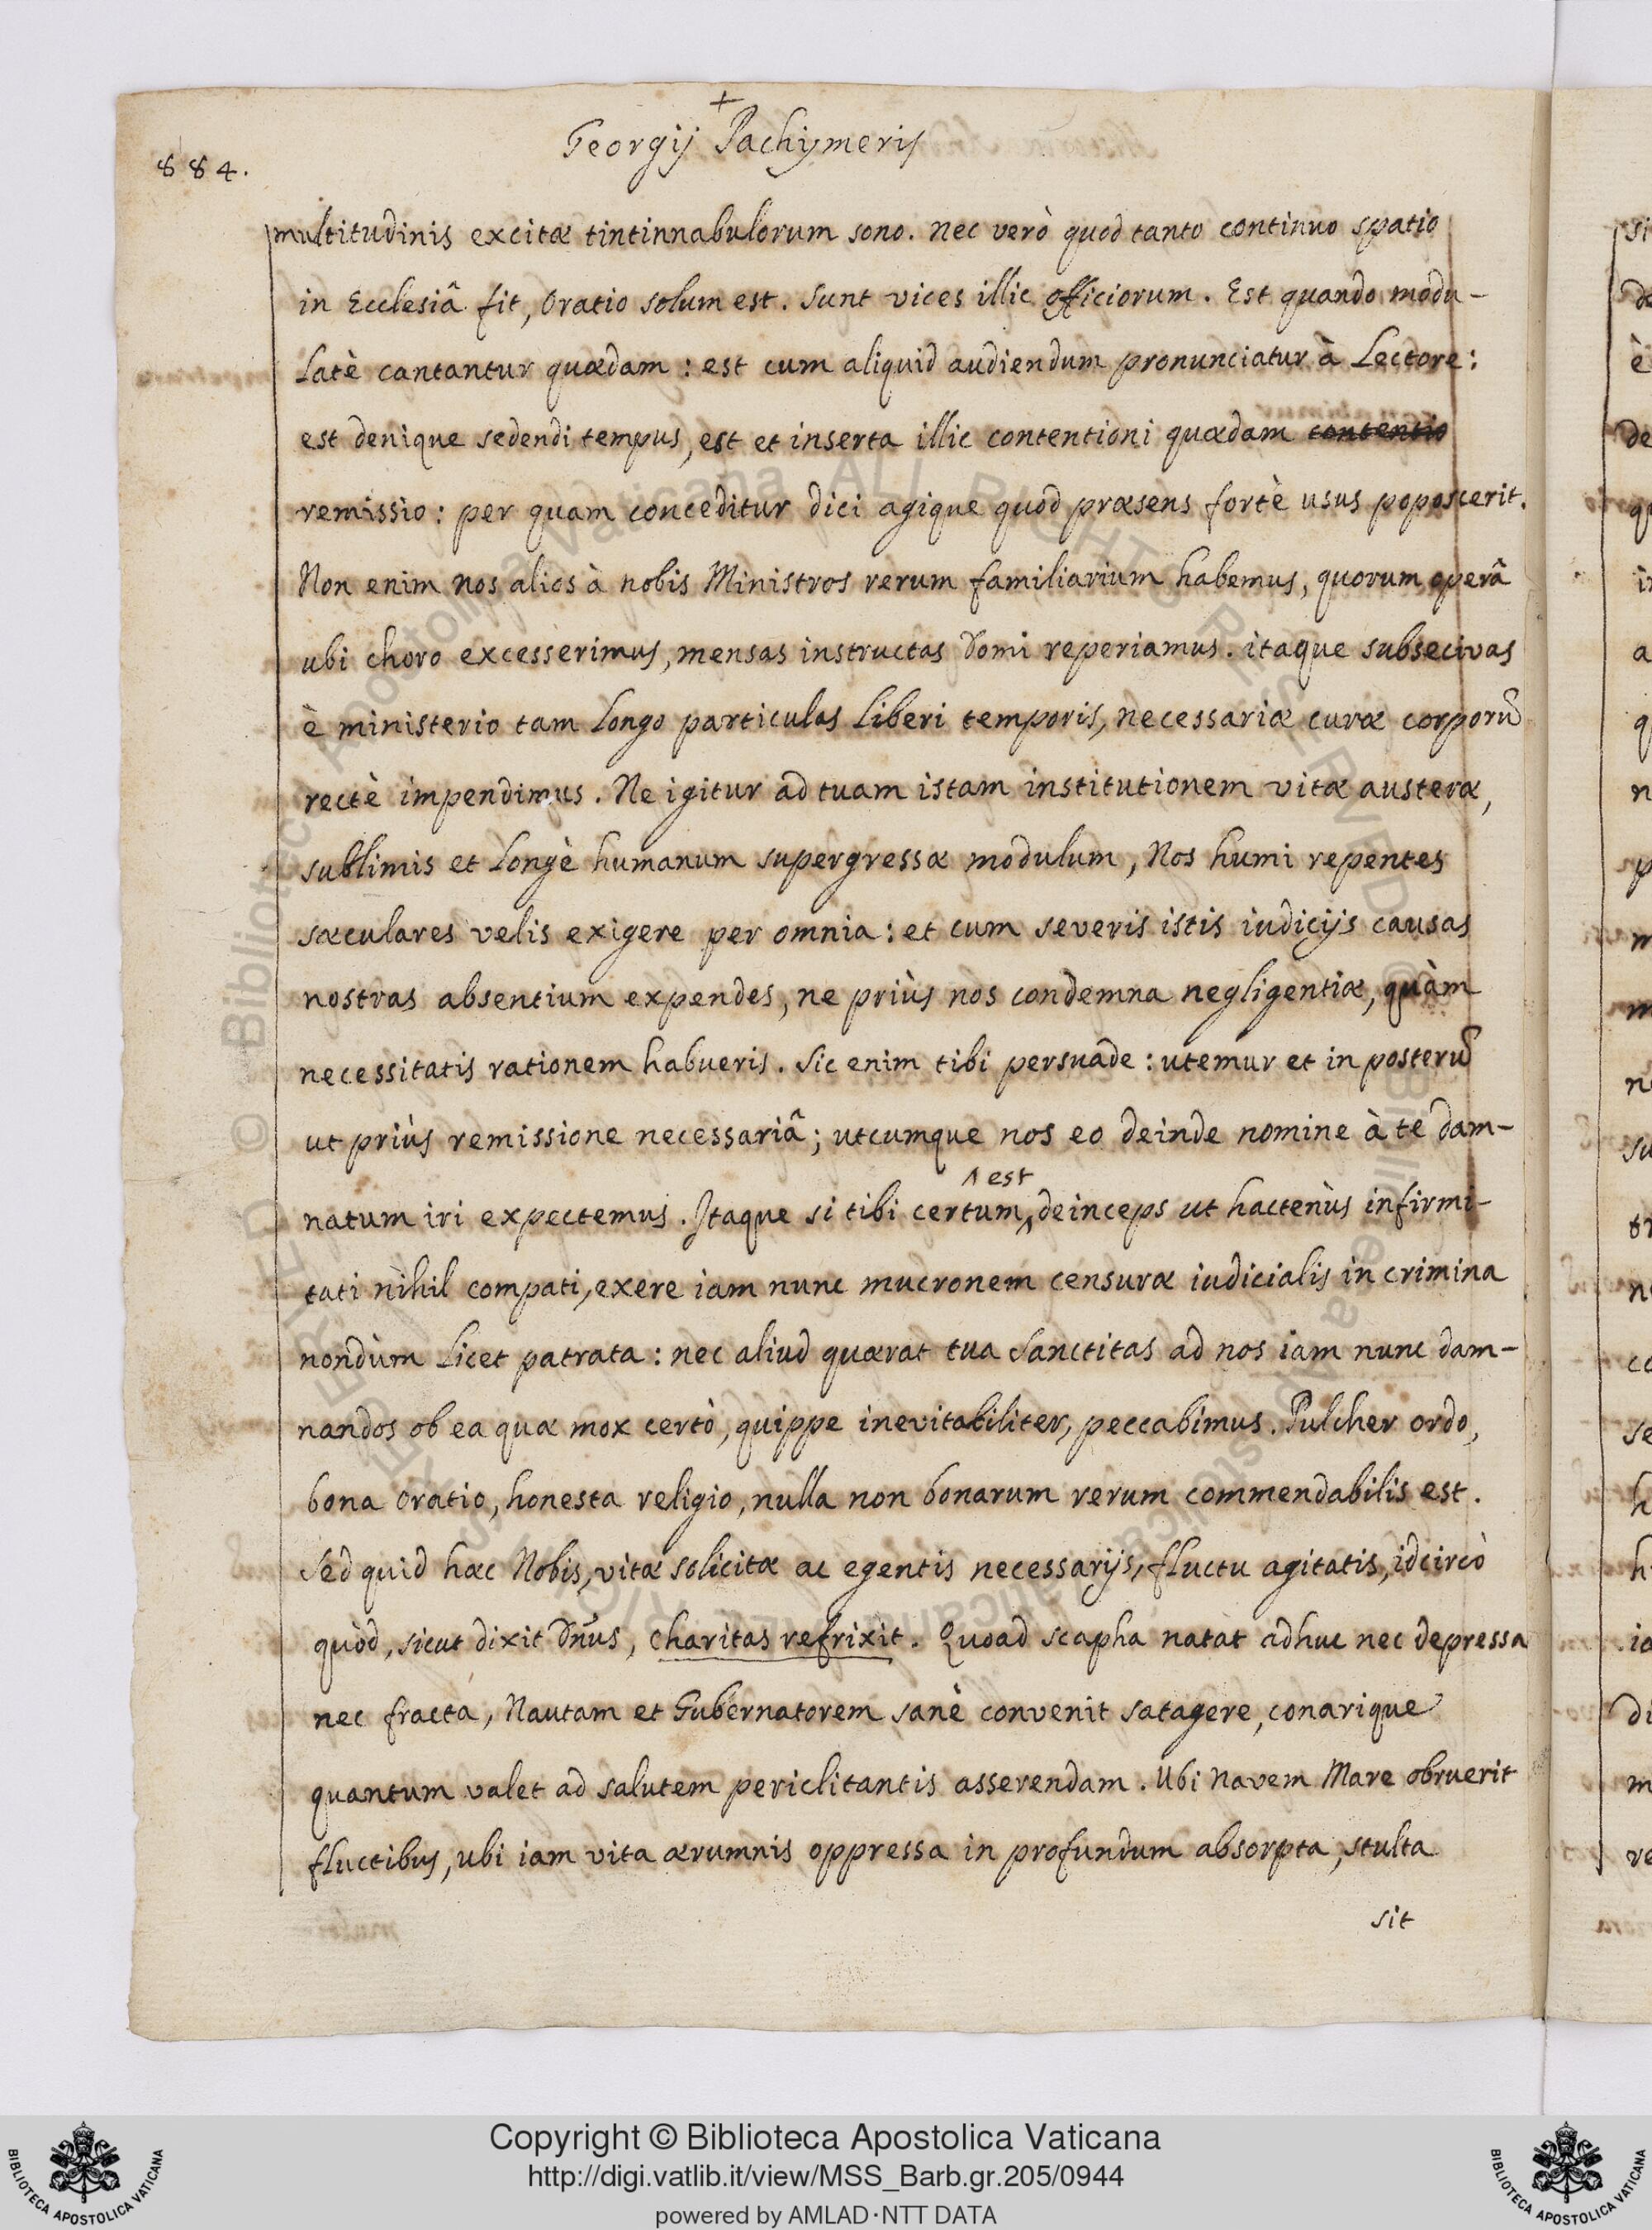 +
Georgij Pachijmeris
884.
multitudinis excitæ tintinnabulorum sono. Nec verò quod tanto continuo spatio
in Ecclesiâ fit, Oratio solum est. Sunt vices illic officiorum. Est quando modu-
latè cantantur quædam : est cum aliquid audiendum pronunciatur à Lectore :
est denique sedendi tempus, est et inserta illic contentioni quædam contentio
remissio : per quam conceditur dici agique quod præsens fortè usus poposcerit.
Non enim nos alios à nobis Ministros rerum familiarium habemus, quorum operâ
ubi choro excesserimus, mensas instructas domi reperiamus. itaque subsecivas
è ministerio tam longo particulas liberi temporis, necessariæ curæ corporū
rectè impendimus. Ne igitur ad tuam istam institutionem vitæ austeræ,
sublimis et longè humanum supergressæ modulum, Nos humi repentes
sæculares velis exigere per omnia : et cum severis istis iudicijs causas
nostras absentium expendes, ne priùs nos condemna negligentiæ, quàm
necessitatis rationem habueris. Sic enim tibi persuade : utemur et in posterū
ut priùs remissione necessariâ ; utcumque nos eo deinde nomine à te dam-
natum iri expectemus. Itaque si tibi certum ^ est deinceps ut hactenùs infirmi-
tati nihil compati, exere iam nunc mucronem censuræ iudicialis in crimina
nondùm licet patrata : nec aliud quærat tua Sanctitas ad nos iam nunc dam-
nandos ob ea quæ mox certò, quippe inevitabiliter, peccabimus. Pulcher ordo,
bona Oratio, honesta religio, nulla non bonarum rerum commendabilis est.
Sed quid hæc Nobis, vitæ solicitæ ac egentis necessarijs, fluctu agitatis, idcircò
quòd, sicut dixit Dn̄us, Charitas refrixit. Quoad scapha natat adhuc nec depressa
nec fracta, Nautam et Gubernatorem sanè convenit satagere, conarique
quantum valet ad salutem periclitantis asserendam. Ubi Navem Mare obruerit
fluctibus, ubi iam vita ærumnis oppressa in profundum absorpta, stulta
sit
Copyright © Biblioteca Apostolica Vaticana
http://digi.vatlib.it/view/MSS_Barb.gr.205/0944
powered by AMLAD·NTT DATA
BIBLIOTECA APOSTOLICA VATICANA
BIBLIOTECA APOSTOLICA VATICANA